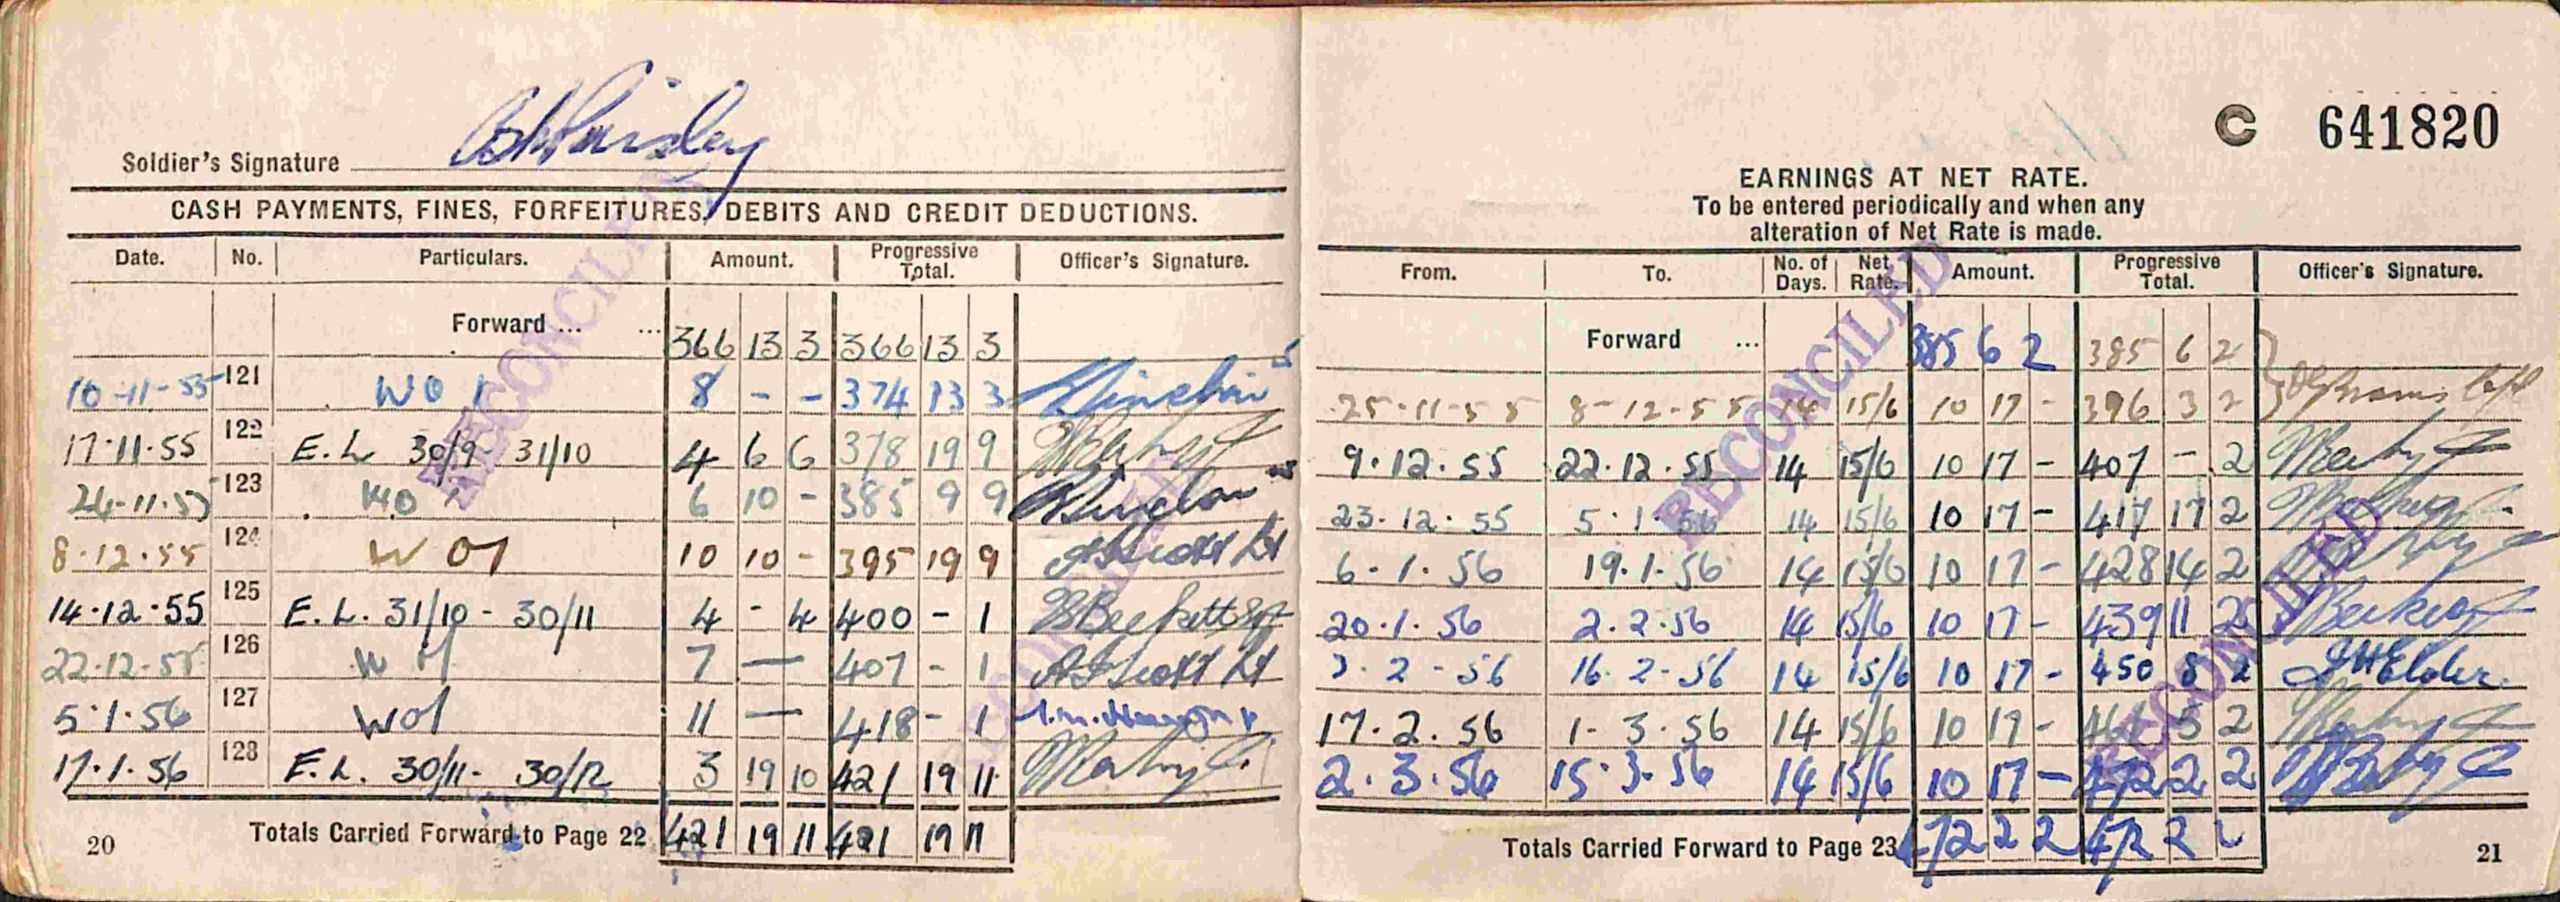 Soldier's Signature
CASH PAYMENTS, FINES, FORFEITURES, DEBITS AND CREDIT DEDUCTIONS.
Date. No. Particulars. Amount. Progressive Total. Officer's Signature.
Forward ... ... 366 13 3 366 13 3
10-11-55 121 W01 8 - - 374 13 3
17.11.55 122 E.L 30/9 - 31/10 4 6 6 378 19 9
24-11-55 123 6 10 - 385 9 9
8.12.55 124 W01 10 10 - 395 19 9 A Scott Lt
14.12.55 125 E.L. 31/10 - 30/11 4 - 4 400 - 1 Beckett Sgt
22.12.55 126 W01 7 — 407 - 1 A Scott Lt
5.1.56 127 W01 11 — 418 - 1
17.1.56 128 E.L. 30/11 - 30/12 3 19 10 421 19 11
20 Totals Carried Forward to Page 22 421 19 11 421 19 11
C 641820
EARNINGS AT NET RATE.
To be entered periodically and when any
alteration of Net Rate is made.
From. To. No. of Days. Net Rate. Amount. Progressive Total. Officer's Signature.
Forward ... 385 6 2 385 6 2
25.11.55 8-12-55 14 15/6 10 17 - 396 3 2 Capt
9.12.55 22.12.55 14 15/6 10 17 - 407 - 2
23.12.55 5.1.56 14 15/6 10 17 - 417 17 2
6.1.56 19.1.56 14 15/6 10 17 - 428 14 2
20.1.56 2.2.56 14 15/6 10 17 - 439 11 2
3.2-56 16.2-56 14 15/6 10 17 - 450 8 2 J H Elder
17.2.56 1-3.56 14 15/6 10 17 - 461 5 2
2.3.56 15.3.56 14 15/6 10 17 - 472 2 2
Totals Carried Forward to Page 23 472 2 2 472 2 2
21
RECONCILED
RECONCILED
RECONCILED
RECONCILED